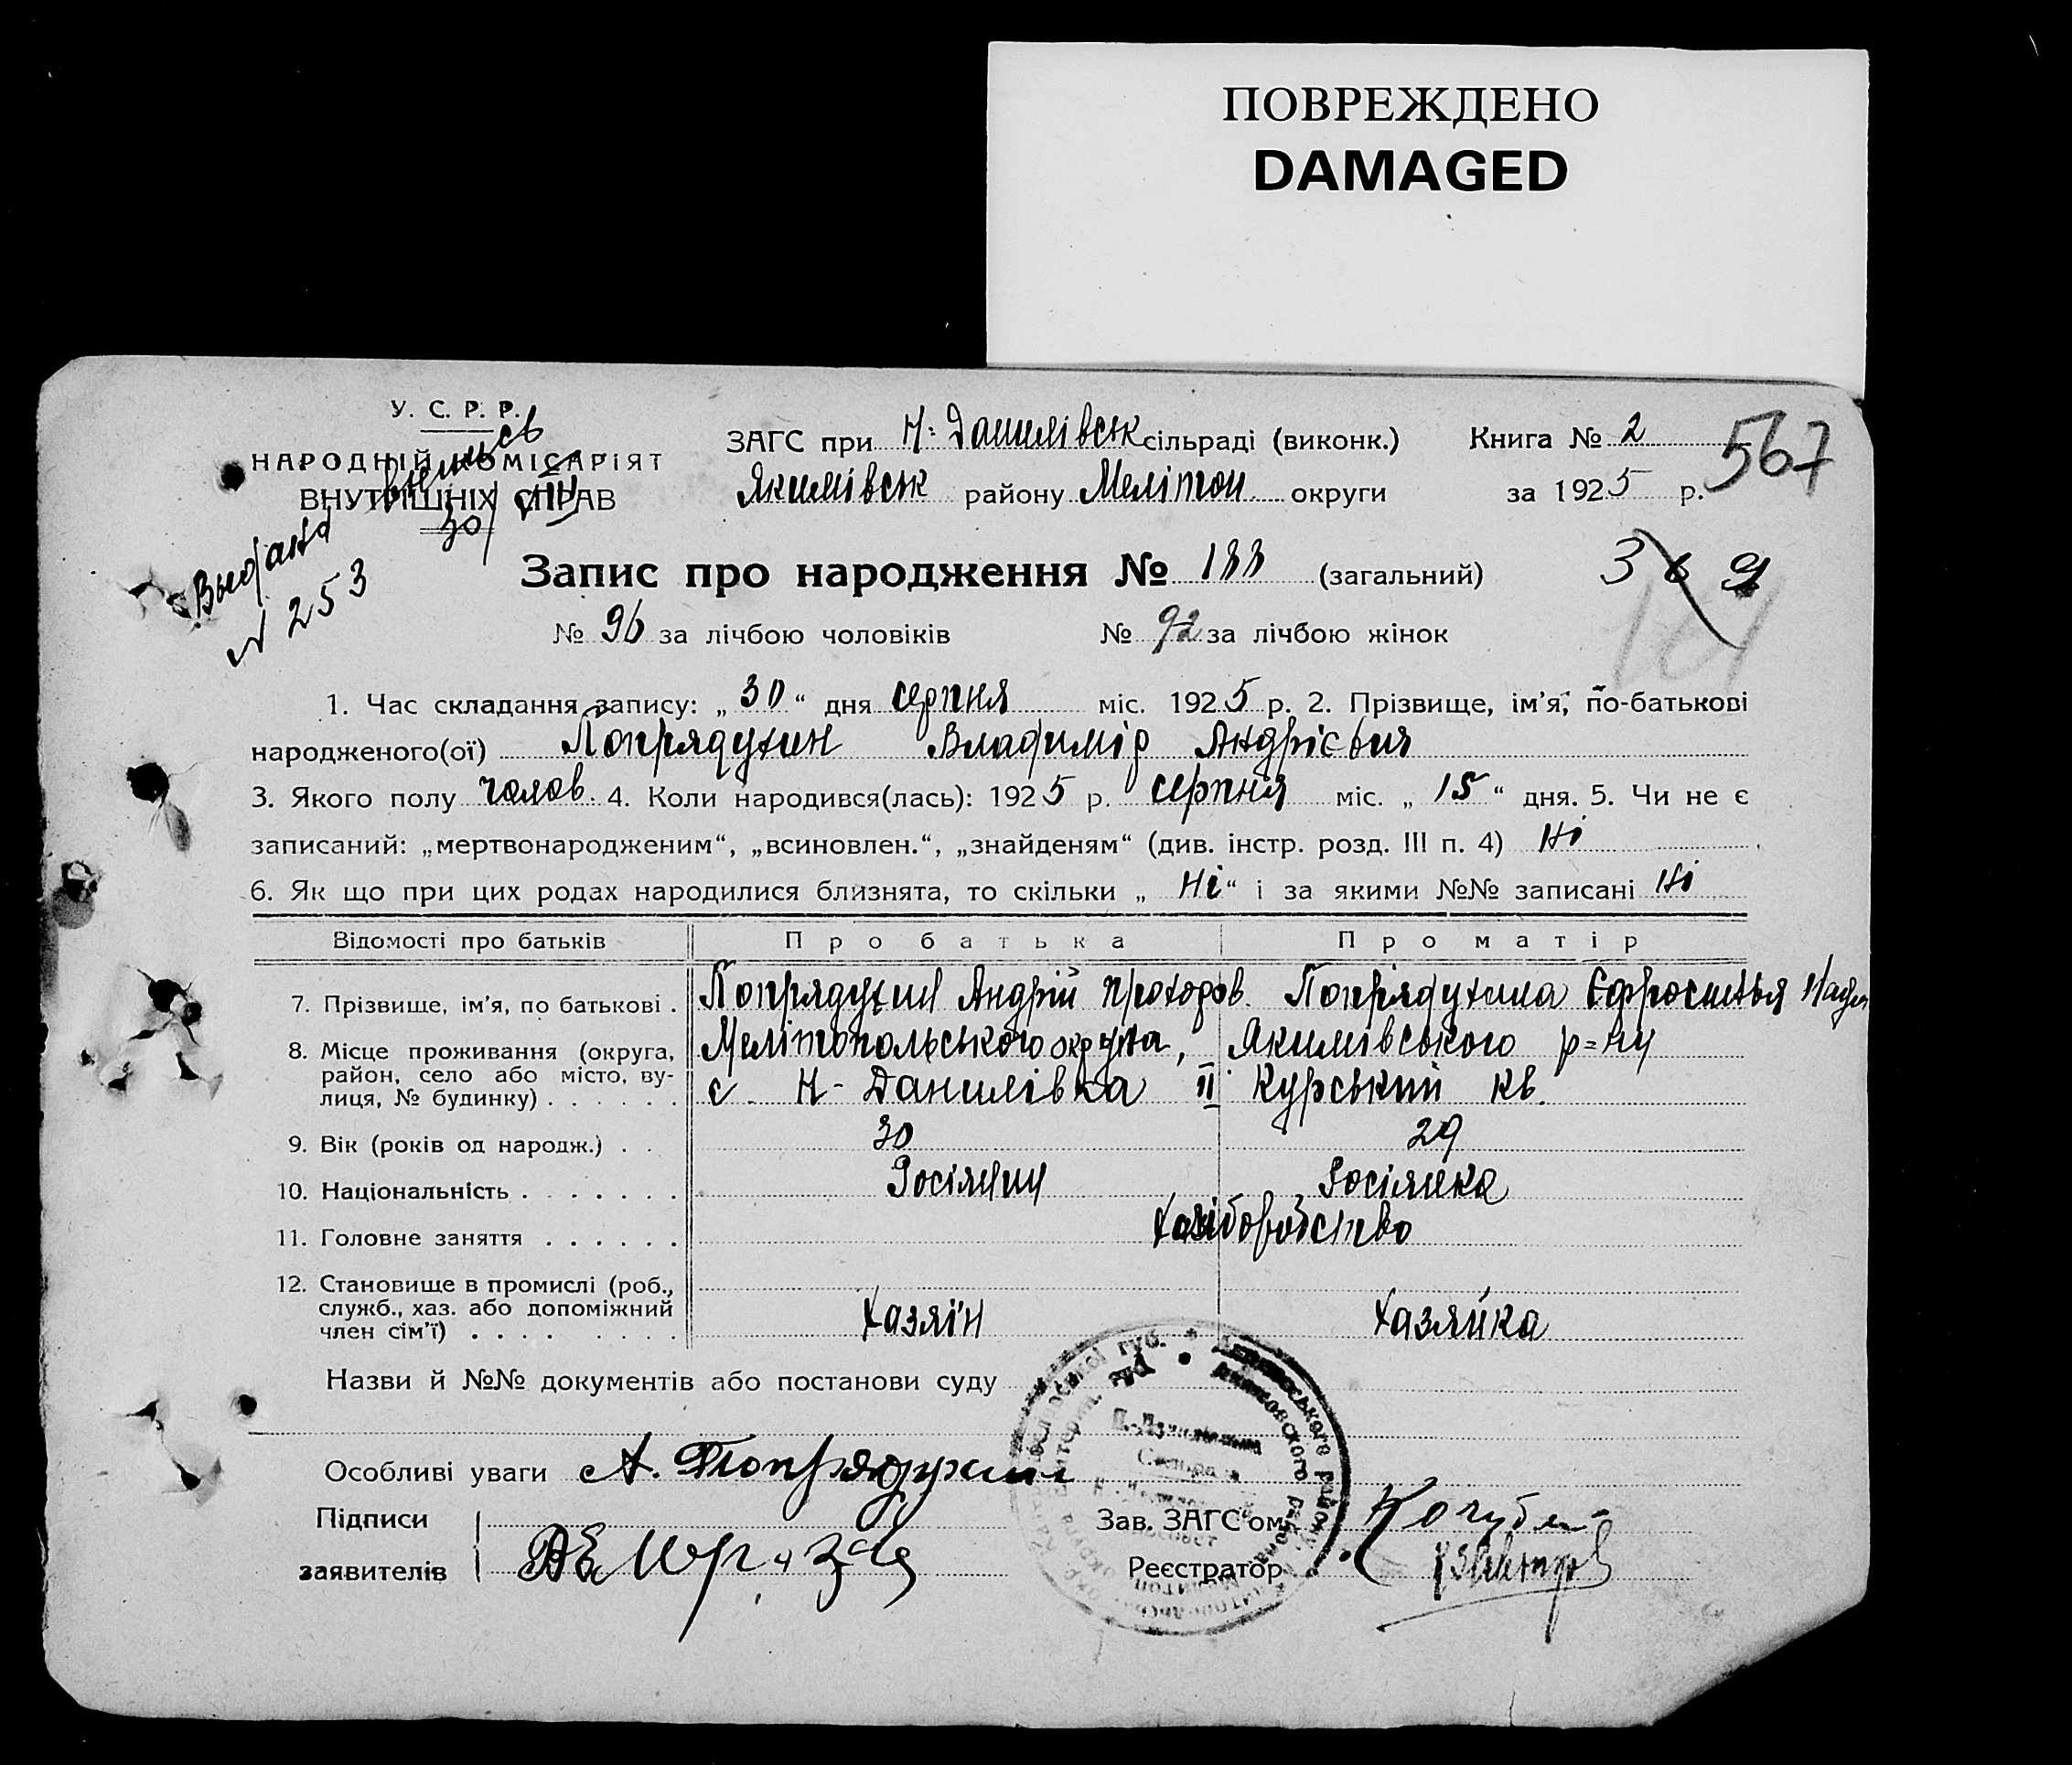 ПОВРЕЖДЕНО
DAMAGED
У. С. Р. Р.
НАРОДНІЙ КОМІСАРІЯТ
ВНУТРІШНІХ СПРАВ
Выдана выпись
30/VIII
№ 253
ЗАГС при Н-Данилівськ сільраді (виконк.) Книга № 2
567
Якимівськ району Мелітоп округи за 1925 р.
Запис про народження № 188 (загальний)
369
№ 96 за лічбою чоловіків № 92 за лічбою жінок
1. Час складання запису: „30“ дня серпня міс. 1925 р. 2. Прізвище, ім'я, по-батькові
народженого(ої) Попрядухин Владимір Андрієвич
3. Якого полу чолов. 4. Коли народився(лась): 1925 р. серпня міс. „15“ дня. 5. Чи не є
записаний: „мертвонародженим“, „всиновлен.“, „знайденям“ (див. інстр. розд. III п. 4) Ні
6. Як що при цих родах народилися близнята, то скільки „Ні“ і за якими №№ записані Ні
Відомості про батьків Про батька Про матір
7. Прізвище, ім'я, по батькові . Попрядухин Андрій Прохоров. Попрядухина Єфросинья
8. Місце проживання (округа, Меліпопольського округа, Якимівського р=ну
район, село або місто, ву-
лиця, № будинку) . . . . . . с. Н-Данилівка II Курський кв.
9. Вік (років од народж.) . . 30 29
10. Національність . . . . . . . Росіянин Росіянка
11. Головне заняття . . . . . . Хліборобство
12. Становище в промислі (роб.,
служб., хаз. або допоміжний
член сім'ї) . . . . . . . . Хазяїн Хазяйка
Назви й №№ документів або постанови суду
Особливі уваги А. Попрядухин
Підписи
заявителів
Зав. ЗАГС'ом Кочубей
Реєстратор